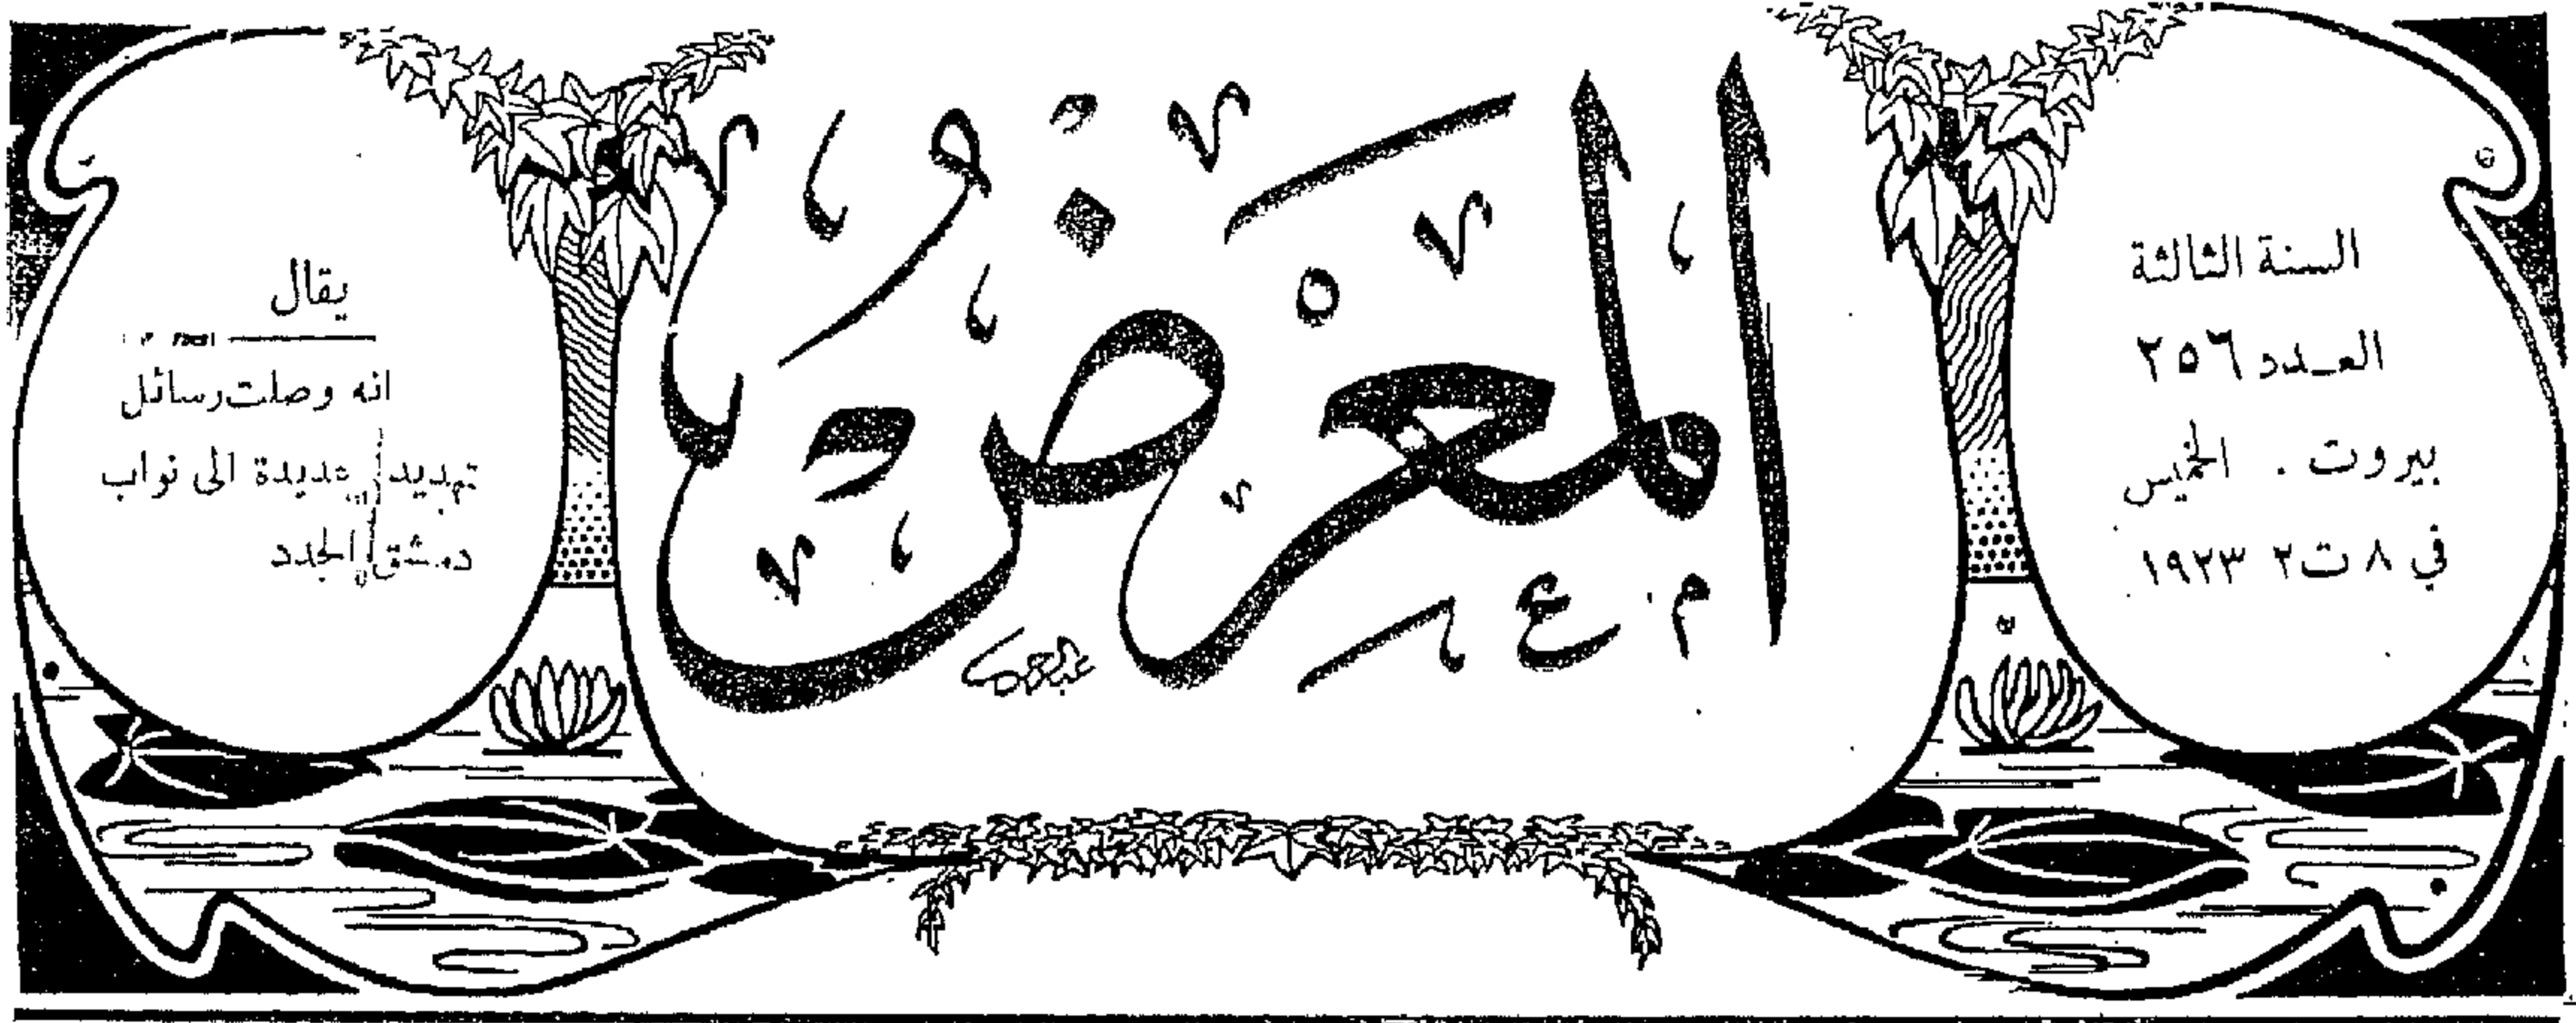 السنة الثالثة
العدد ٢٥٦
بيروت . الخميس
في ٨ ت٢ ١٩٢٣
المعرض
يقال
انه وصلت رسائل
تهديد عديدة الى نواب
دمشق الجدد